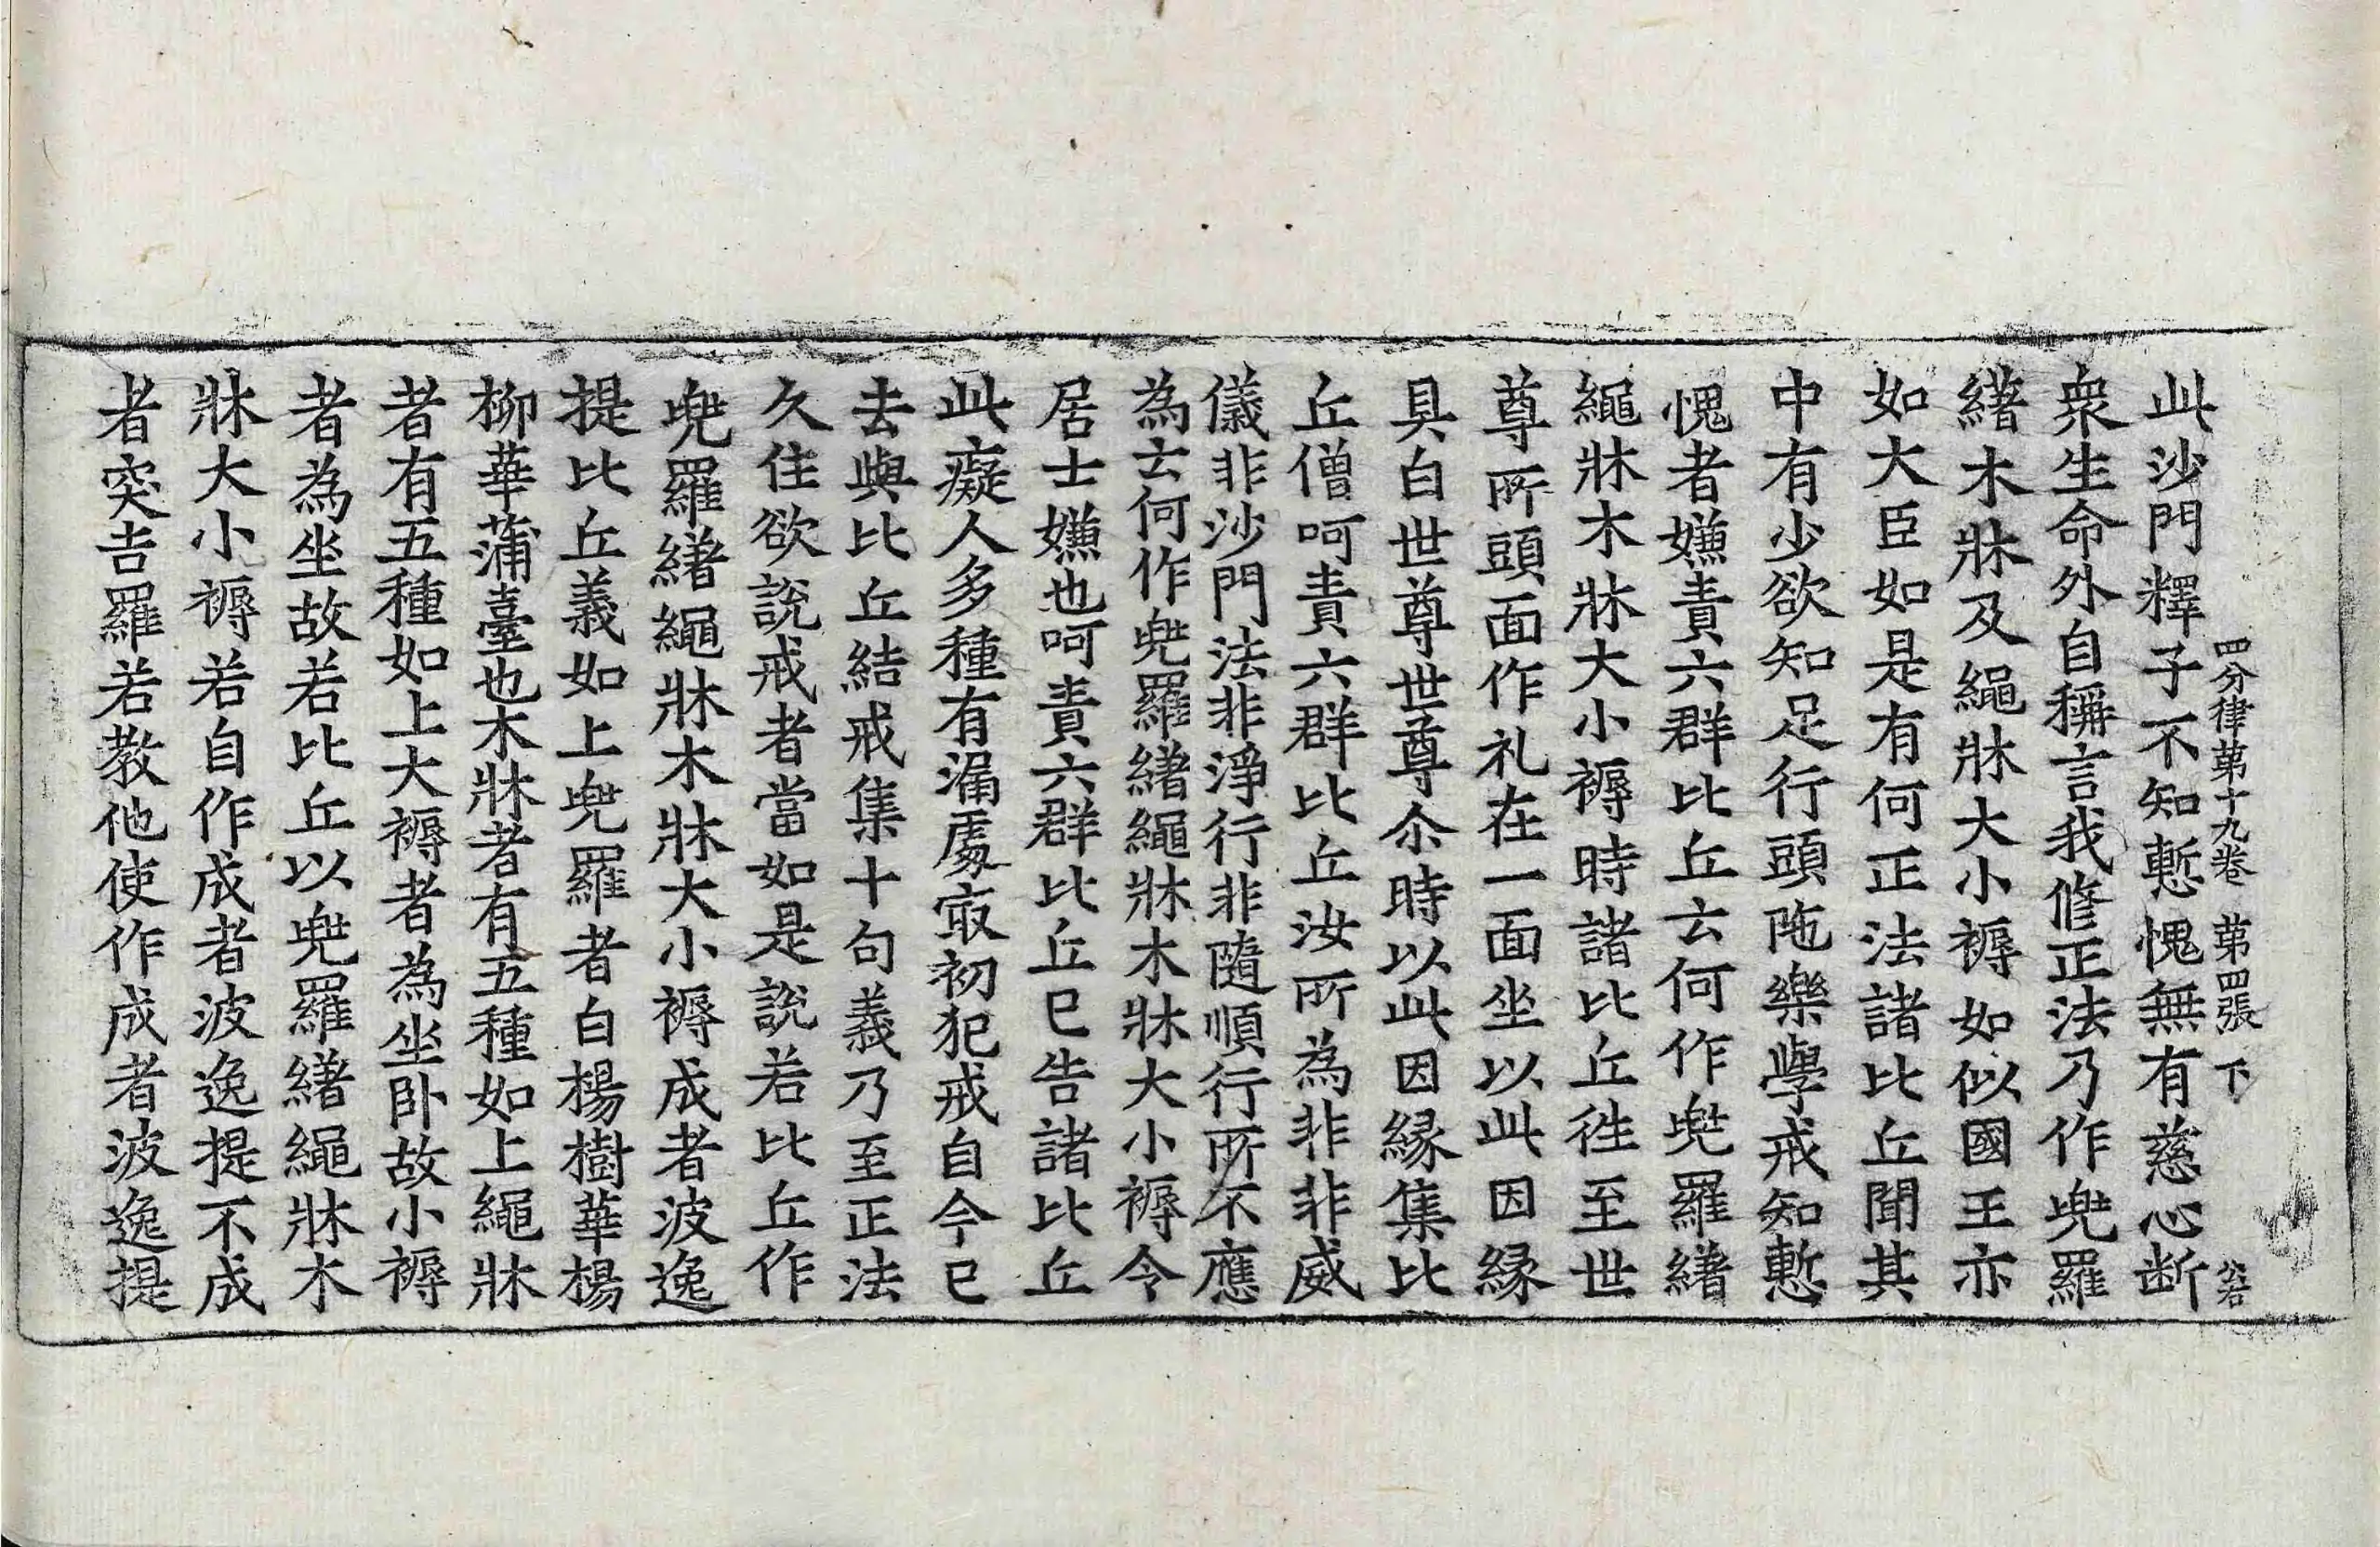 四分律第十九卷 第四張 下
此沙門釋子不知慙愧無有慈心断
衆生命外自稱言我修正法乃作兠羅
䋠木牀及繩牀大小褥如似國王亦
如大臣如是有何正法諸比丘聞其
中有少欲知足行頭陁樂學戒知慙
愧者嫌責六群比丘云何作兠羅䋠
繩牀木牀大小褥時諸比丘徃至世
尊所頭面作礼在一面坐以此因緣
具白世尊世尊尒時以此因緣集比
丘僧呵責六群比丘汝所為非非威
儀非沙門法非淨行非隨順行所不應
為云何作兠羅䋠繩牀木牀大小褥令
居士嫌也呵責六群比丘已告諸比丘
此癡人多種有漏處㝡初犯戒自今已
去與比丘結戒集十句義乃至正法
久住欲說戒者當如是說若比丘作
兠羅䋠繩牀木牀大小褥成者波逸
提比丘義如上兠羅者白楊樹華楊
柳華蒲臺也木牀者有五種如上繩牀
者有五種如上大褥者為坐卧故小褥
者為坐故若比丘以兠羅䋠繩牀木
牀大小褥若自作成者波逸提不成
者突吉羅若教他使作成者波逸提